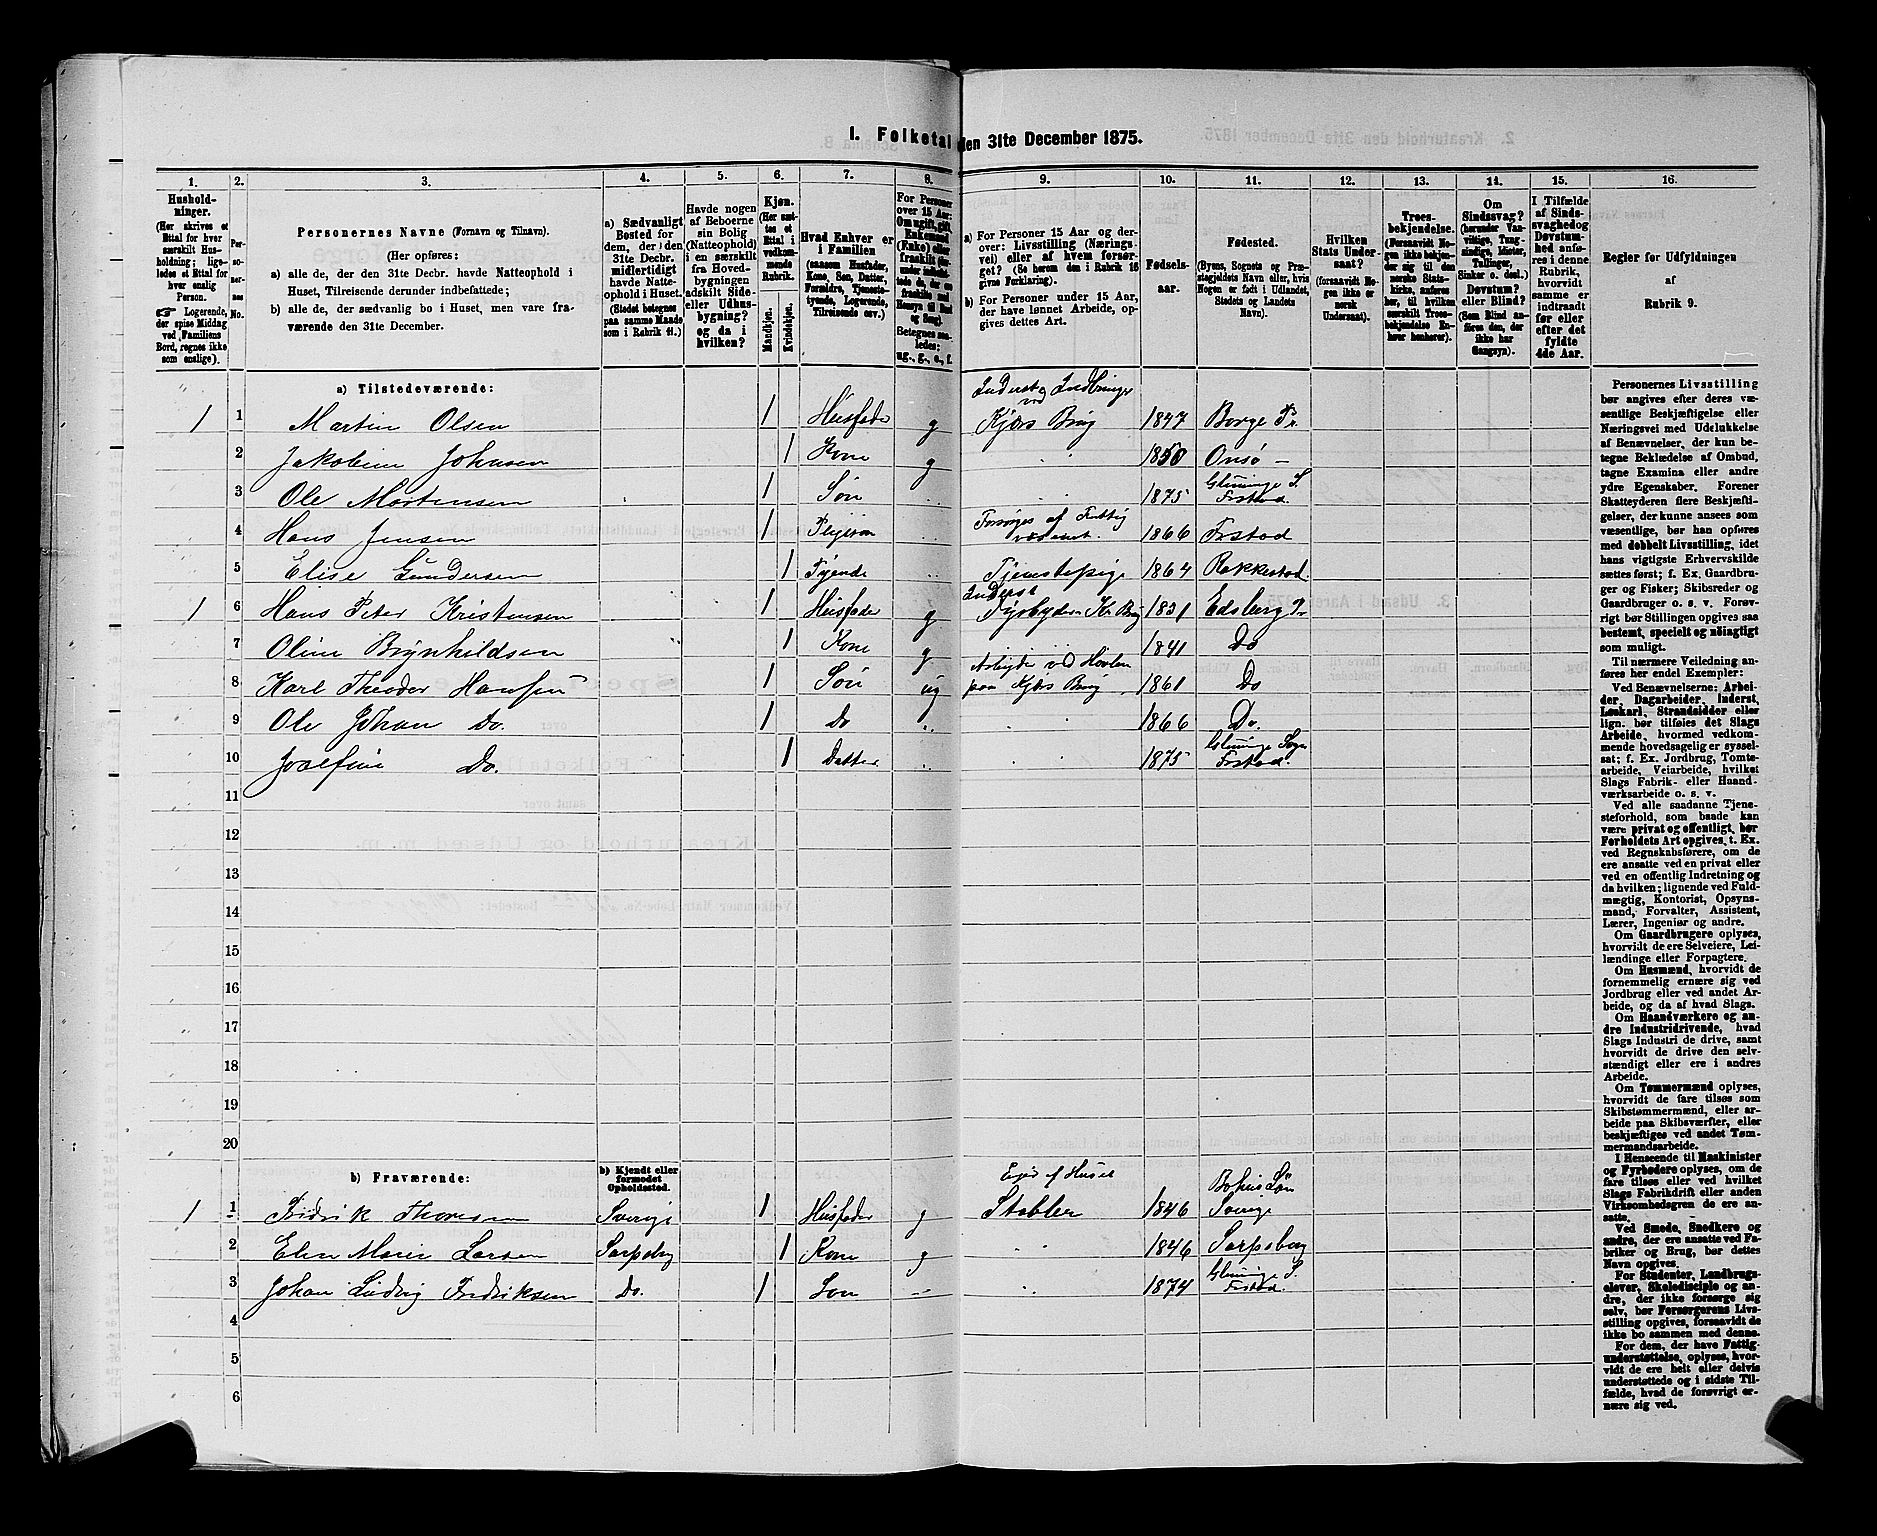 1. Folketal den 31te December 1875.
1. 2. 3. 4. 5. 6. 7. 8. 9. 10. 11. 12. 13. 14. 15. 16.
Hushold-
ninger.
(Her skrives et
Ettal for hver
særskilt Hus-
holdning; lige-
ledes et Ettal for
hver enlig
Person.
☞ Logerende,
der spise Middag
ved Familiens
Bord, regnes ikke
som enslige).
Per-
so-
ner-
nes
No.
Personernes Navne (Fornavn og Tilnavn).
(Her opføres:
a) alle de, der den 31te Decbr. havde Natteophold i
Huset, Tilreisende derunder indbefattede;
b) alle de, der sædvanlig bo i Huset, men vare fra-
værende den 31te December.
a) Sædvanligt
Bosted for
dem, der den
31te Decbr.
midlertidigt
havde Natte-
ophold i Huset.
(Stedet betegnes
paa samme Maade
som i Rubrik 11.)
Havde nogen
af Beboerne
sin Bolig
(Natteophold)
i en særskilt
fra Hoved-
bygningen
adskilt Side-
eller Udhus-
bygning?
og da i
hvilken?
Kjøn.
(Her sæt-
tes et
Ettal i
vedkom-
mende
Rubrik.
Mandkjøn.
Kvindekjøn.
Hvad Enhver er
i Familien
(saasom Husfader,
Kone, Søn, Datter,
Forældre, Tjeneste-
tyende, Logerende,
Tilreisende osv.)
For Personer
over 15 Aar:
Om ugift, gift,
Enkemand
(Enke) eller
fraskilt
Betegnes saa-
ledes:
ug., g., e., f.
a) For Personer 15 Aar og der-
over: Livsstilling (Nærings-
vei) eller af hvem forsør-
get? (Se herom den i Rubrik 16
givne Forklaring).
b) For Personer under 15 Aar,
der have lønnet Arbeide, op-
gives dettes Art.
Fødsels-
aar.
Fødested.
(Byens, Sognets og Præ-
stegjeldets Navn eller, hvis
Nogen er født i Udlandet,
Stedets og Landets
Navn).
Hvilken
Stats Under-
saat?
(forsaavidt No-
gen ikke er
norsk
Undersaat).
Troes-
bekjendelse.
(Forsaavidt No-
gen ikke bekjen-
der sig til den
norske Stats-
kirke, anføres
her, til hvilken
særskilt Troes-
bekjendelse En-
hver henhører).
Om
Sindssvag?
(herunder Van-
vittige, Tung-
sindige, Idioter,
Tullinger,
Sinker o. desl.)
Døvstum?
eller Blind?
(Som Blind an-
føres den, der
ikke har
Gangsyn).
I Tilfælde
af Sinds-
svaghed og
Døvstum-
hed anfø-
res i denne
Rubrik,
hvorvidt
samme er
indtraadt
før eller
efter det
fyldte
4de Aar.
Regler for Udfyldningen
af
Rubrik 9.
a) Tilstedeværende:
Inderst og Indbringer
1 1 Martin Olsen 1 Husfader g ved Kjærs Brug 1847 Borge Pr.
2 Jakobine Johnsen 1 Kone g 1850 Onsø —
3 Ole Martensen 1 Søn 1875 Glemminge S. Frstad.
4 Hans Jensen 1 Plejesøn Forsørges af Fattigvæsenet. 1866 Frstad
5 Elise Gundersen 1 Tyende Tjenestepige 1864 Rakkestad.
1 6 Hans Peter Kristensen 1 Husfader g Inderst Fyrbyder Kr. Brug 1831 Edsberg Pr
7 Oline Brynhildsen 1 Kone g 1841 Do
8 Karl Theodor Hansen 1 Søn ug Arbeyde ved Høvlen paa Kjærs Brug 1861 Do
9 Ole Johan Do. 1 Do 1866 Do.
10 Josefine Do. 1 Datter 1875 Glemminge Sogn Frstad
11
12
13
14
15
16
17
18
19
20
b) Fraværende:
b) Kjendt eller
formodet
Opholdssted.
1 1 Fridrik Thoresen Sverige 1 Husfader g Ejer af Huset Stabler 1846 Bohus Län Sverige
2 Elen Marie Larsen Sarpsborg 1 Kone g 1846 Sarpsborg
3 Johan Ludvig Fredriksen Do. 1 Søn 1874 Glemminge S. Frstad.
4
5
6
Personernes Livsstilling
bør angives efter deres væ-
sentlige Beskjæftigelse eller
Næringsvei med Udelukkelse
af Benævnelser, der kun be-
tegne Beklædelse af Ombud,
tagne Examina eller andre
ydre Egenskaber. Forener
Skatteyderen flere Beskjæfti-
gelser, der kunne ansees som
væsentlige, bør han opføres
med dobbelt Livsstilling, idet
hans vigtigste Erhvervskilde
sættes først; f. Ex. Gaardbru-
ger og Fisker; Skibsreder og
Gaardbruger o. s. v. Forøv-
rigt bør Stillingen opgives saa
bestemt, specielt og nøiagtigt
som muligt.
Til nærmere Veiledning an-
føres her endel Exempler:
Ved Benævnelserne: Arbei-
der, Dagarbeider, Inderst,
Løskarl, Strandsidder eller
lign. bør tilføies det Slags
Arbeide, hvormed vedkom-
mende hovedsagelig er syssel-
sat; f. Ex. Jordbrug, Tomte-
arbeide, Veiarbeide, hvilket
Slags Fabrik- eller Haand-
værksarbeide o. s. v.
Ved alle saadanne Tjene-
steforhold, som baade kan
være privat og offentligt, bør
Forholdets Art opgives, t. Ex.
ved Regnskabsførere, om de
ere ansatte ved en privat eller
ved en offentlig Indretning og
da hvilken; lignende ved Fuld-
mægtig, Kontorist, Opsyns-
mand, Forvalter, Assistent,
Lærer, Ingeniør og andre.
Om Gaardbrugere oplyses,
hvorvidt de ere Selveiere, Lei-
lændinge eller Forpagtere.
Om Husmænd, hvorvidt de
fornemmelig ernære sig ved
Jordbrug eller ved andet Ar-
beide, og da af hvad Slags.
Om Haandværkere og an-
dre Industridrivende, hvad
Slags Industri de drive, samt
hvorvidt de drive den selv-
stændigt eller ere i andres
Arbeide.
Om Tømmermænd oplyses,
hvorvidt de fare tilsøs som
Skibstømmermænd, eller ar-
beide paa Skibsværfter, eller
beskjæftiges ved andet Tøm-
mermandsarbeide.
I Henseende til Maskinister
og Fyrbødere oplyses, om de
fare tilsøs eller ved hvilket
Slags Fabrikdrift eller anden
Virksomhedsgren de ere an-
satte.
Ved Smede, Snedkere og
andre, der ere ansatte ved Fa-
briker og Brug, bør dettes
Navn opgives.
For Studenter, Landbrugs-
elever, Skoledisciple og an-
dre, der ikke forsørge sig
selv, bør Forsørgerens Livs-
stilling opgives, forsaavidt de
ikke bo sammen med denne.
For dem, der have Fattig-
understøttelse, oplyses, hvor-
vidt de ere helt eller delvis
understøttede og i sidste Til-
fælde, hvad de forøvrigt er-
nære sig ved.